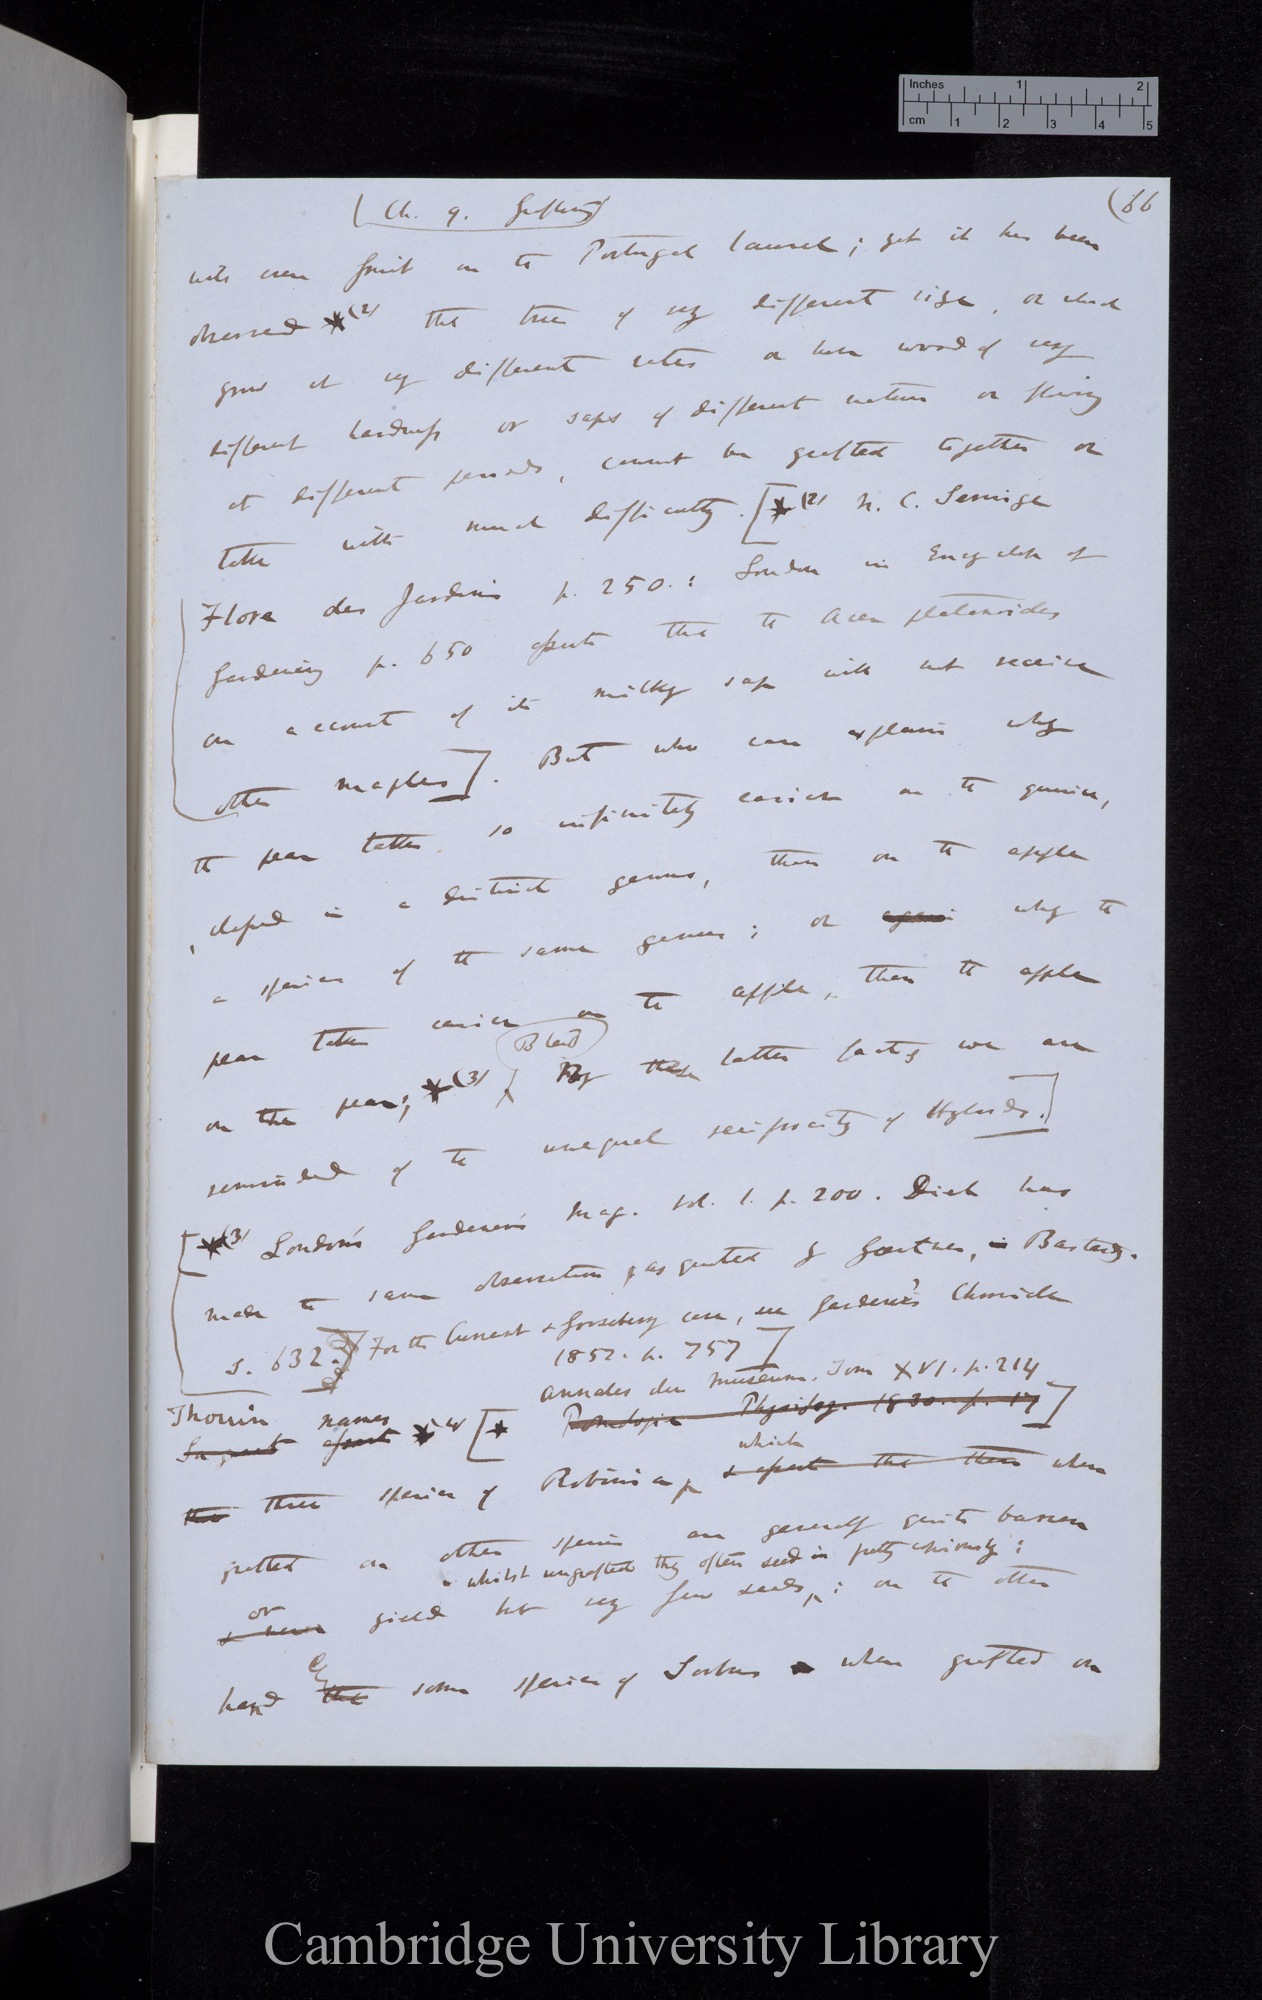 Inches 1 2
cm 1 2 3 4 5
(Ch. 9. Grafting)
(66
with even fruit on the Portugal laurel; yet it has been
observed *(2) that trees of very different size, or which
grow at very different rates or have wood of very
different hardness or saps of different nature or flowering
at different periods, cannot be grafted together or
take with much difficulty. [*(2) N. C. Seringe
Flore des Jardins p. 250.: Loudon in Encyclop of
Gardening p. 650 asserts that the Acer platanoides
on account of its milky sap will not receive
other maples]. But who can explain why
the pear takes so infinitely easier on the quince,
classed in a distinct genus, than on the apple
a species of the same genus; or again why the
pear takes easier on the apple, than the apple
(Bland)
on the pear; *(3) By these latter facts we are
reminded of the unequal reciprocity of Hybrids.]
[*(3) Loudon's Gardener's Mag. vol. 1. p. 200. Diel has
made the same observation as quoted by Gaertner, in Bastardz.
s. 632. For the Currant & Gooseberry case, see Gardener's Chronicle
1852. p. 757]
Annales du Muséum. Tom XVI. p. 214
Thouin names
Sageret assert *(4) [* Pomologie Physiolog. 1830. p. 17]
which
that three species of Robinia, & asserts that these when
grafted on other species are generally quite barren
whilst ungrafted they often seed in pretty copiously;
or
& even yield but very few seeds; on the other
hand the some species of Sorbus when grafted on
Cambridge University Library